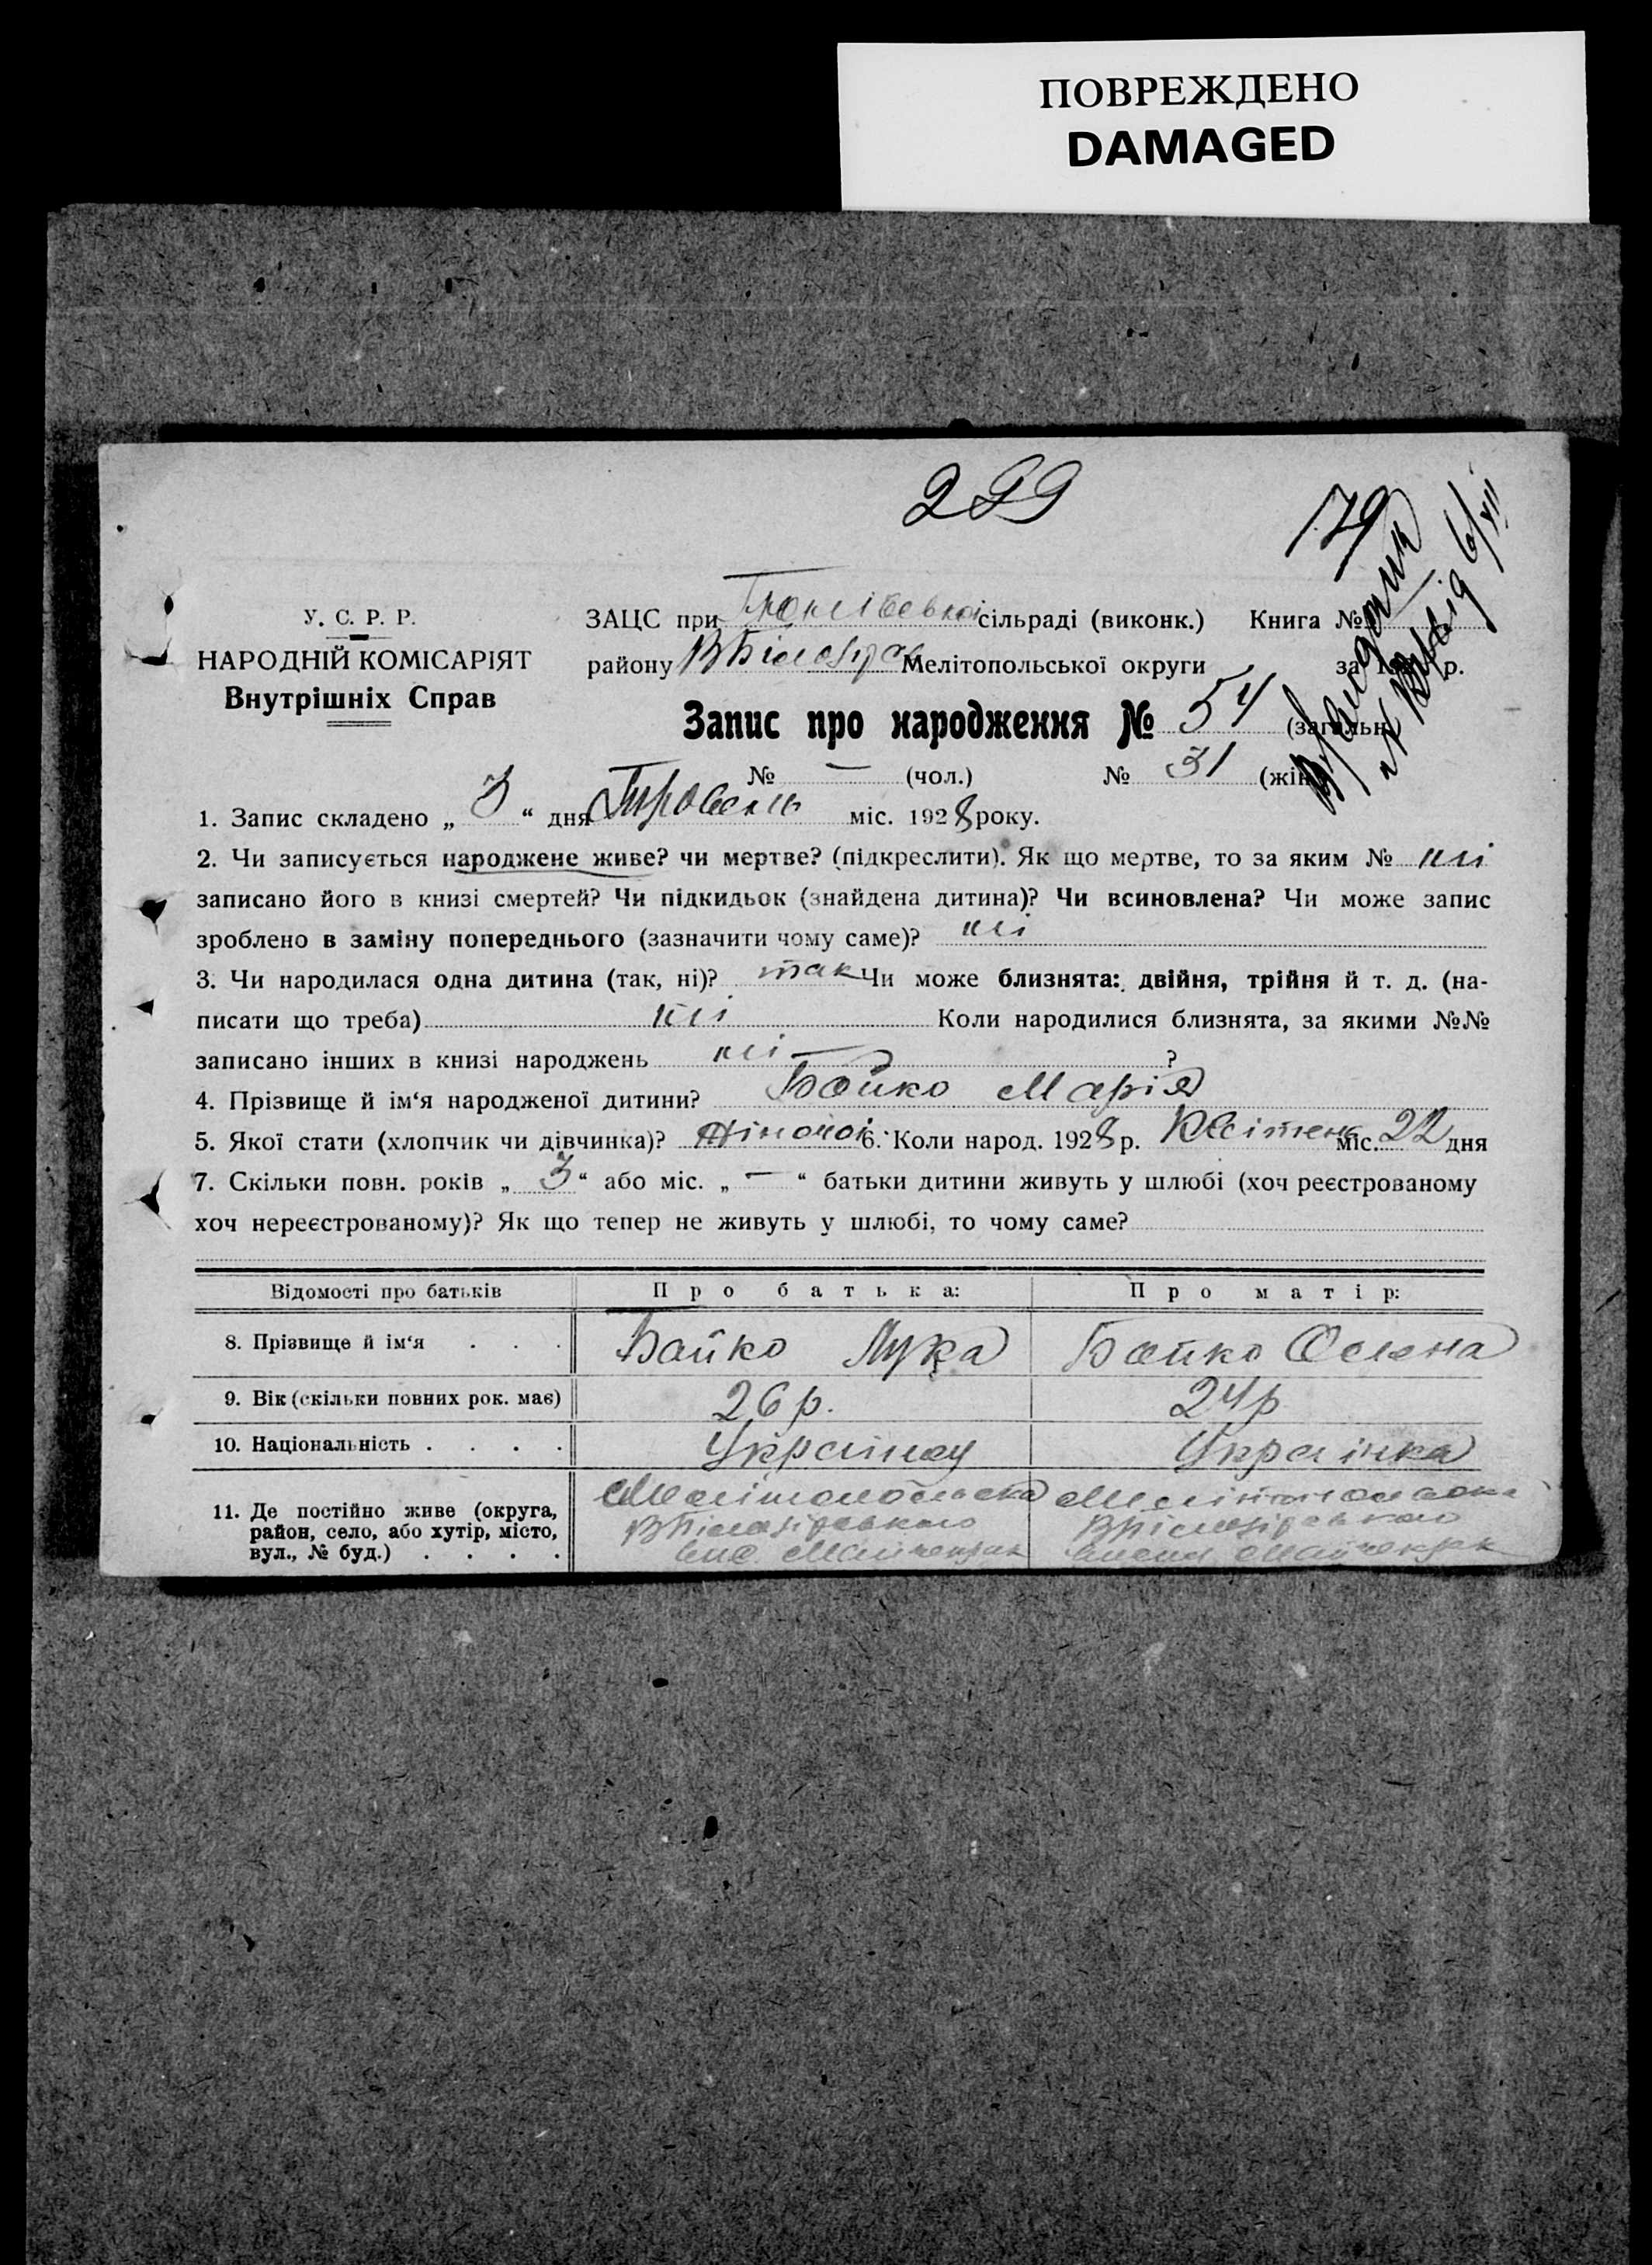 ПОВРЕЖДЕНО
DAMAGED
299
179
У. С. Р. Р.
НАРОДНІЙ КОМІСАРІЯТ
Внутрішніх Справ
ЗАЦС при сільраді (виконк.) Книга №
району Мелітопольської округи за р.
Запис про народження № 54 (загальн.)
№ — (чол.) № 31 (жін
1. Запис складено „ 3 “ дня Травень міс. 1928 року.
2. Чи записується народжене живе? чи мертве? (підкреслити). Як що мертве, то за яким № ні
записано його в книзі смертей? Чи підкидьок (знайдена дитина)? Чи всиновлена? Чи може запис
зроблено в заміну попереднього (зазначити чому саме)? ні
3. Чи народилася одна дитина (так, ні)? так Чи може близнята: двійня, трійня й т. д. (на-
писати що треба) ні Коли народилися близнята, за якими №№
записано інших в книзі народжень ні ?
4. Прізвище й ім‘я народженої дитини? Бойко Марія
5. Якої стати (хлопчик чи дівчинка)? жіночої 6. Коли народ. 1928 р. Квітень міс. 22 дня
7. Скільки повн. років „ 3 “ або міс. „ — “ батьки дитини живуть у шлюбі (хоч реєстрованому
хоч нереєстрованому)? Як що тепер не живуть у шлюбі, то чому саме?
Відомості про батьків Про батька: Про матір:
8. Прізвище й ім‘я . . . Бойко Лука Бойко Олена
9. Вік (скільки повних рок. має) 26 р. 24 р
10. Національність . . . . Українец Українка
11. Де постійно живе (округа,
район, село, або хутір, місто,
вул., № буд.) . . . .